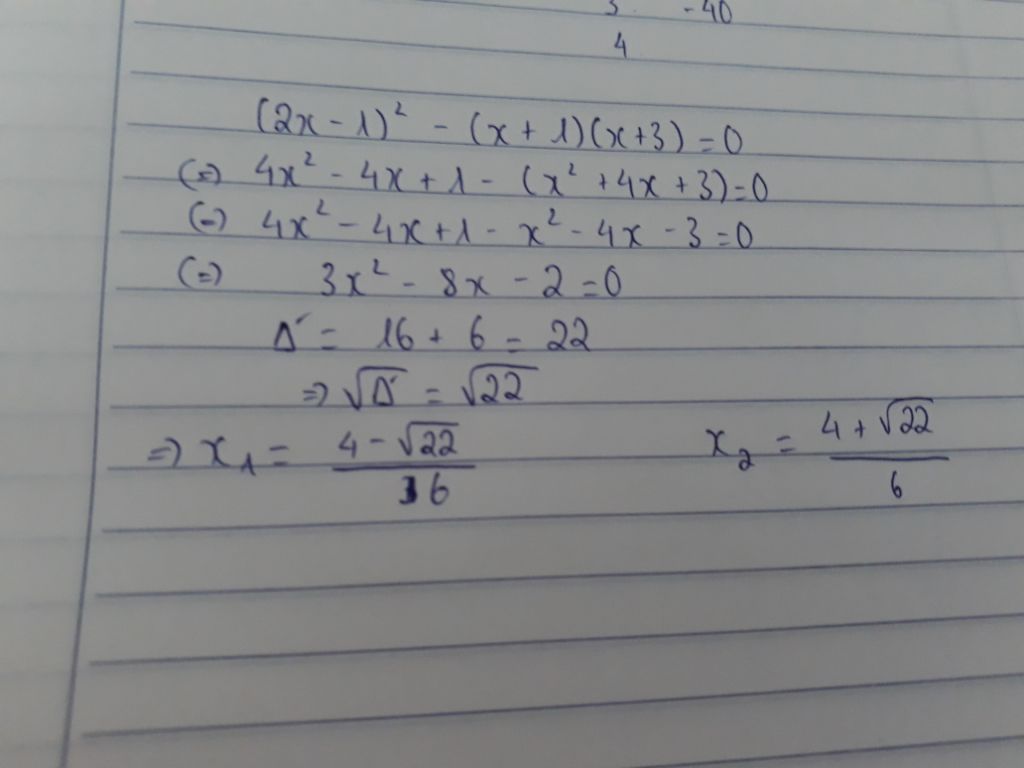 -40
4
(2x - 1)² - (x + 1)(x + 3) = 0
(=) 4x² - 4x + 1 - (x² + 4x + 3) = 0
(=) 4x² - 4x + 1 - x² - 4x - 3 = 0
(=) 3x² - 8x - 2 = 0
Δ' = 16 + 6 = 22
=) √Δ' = √22
=) x₁ = (4 - √22)/6 x₂ = (4 + √22)/6